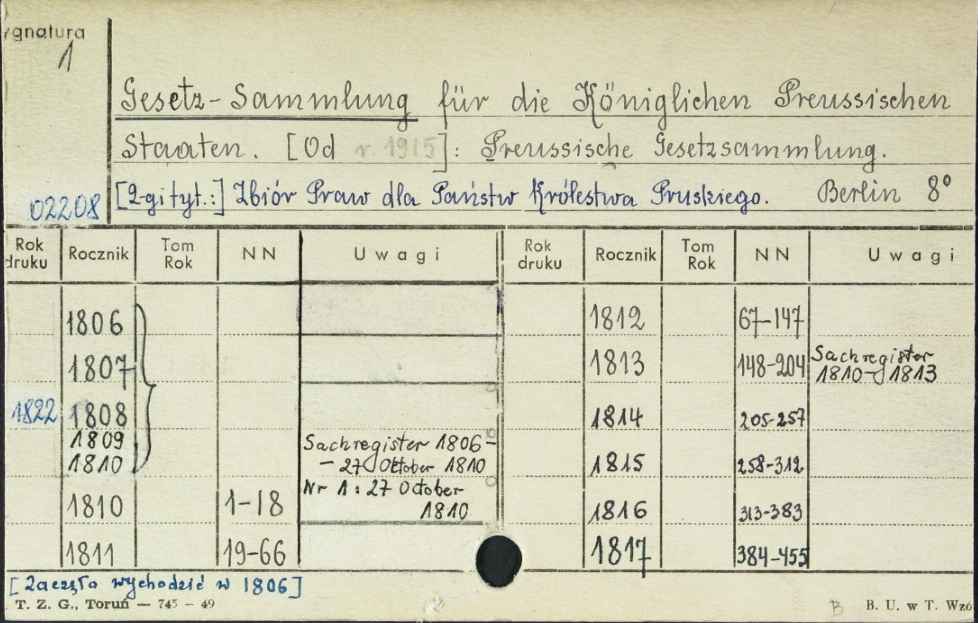 ygnatura
1
Gesetz-Sammlung für die Königlichen Preussischen
Staaten. [Od r. 1915]: Preussische Gesetzsammlung.
02208 [2-gi tyt.:] Zbiór Praw dla Państw Królestwa Pruskiego. Berlin 8°
Rok druku Rocznik Tom Rok NN Uwagi Rok druku Rocznik Tom Rok NN Uwagi
1806 1812 67-147
1807 1813 148-204 Sachregister 1810-1813
1822 1808 1814 205-257
1809
1810 Sachregister 1806-
- 27 Oktober 1810 1815 258-312
1810 1-18 Nr 1: 27 October 1810 1816 313-383
1811 19-66 1817 384-455
[Zaczęło wychodzić w 1806]
T. Z. G., Toruń — 745 - 49 B B. U. w T. Wzó